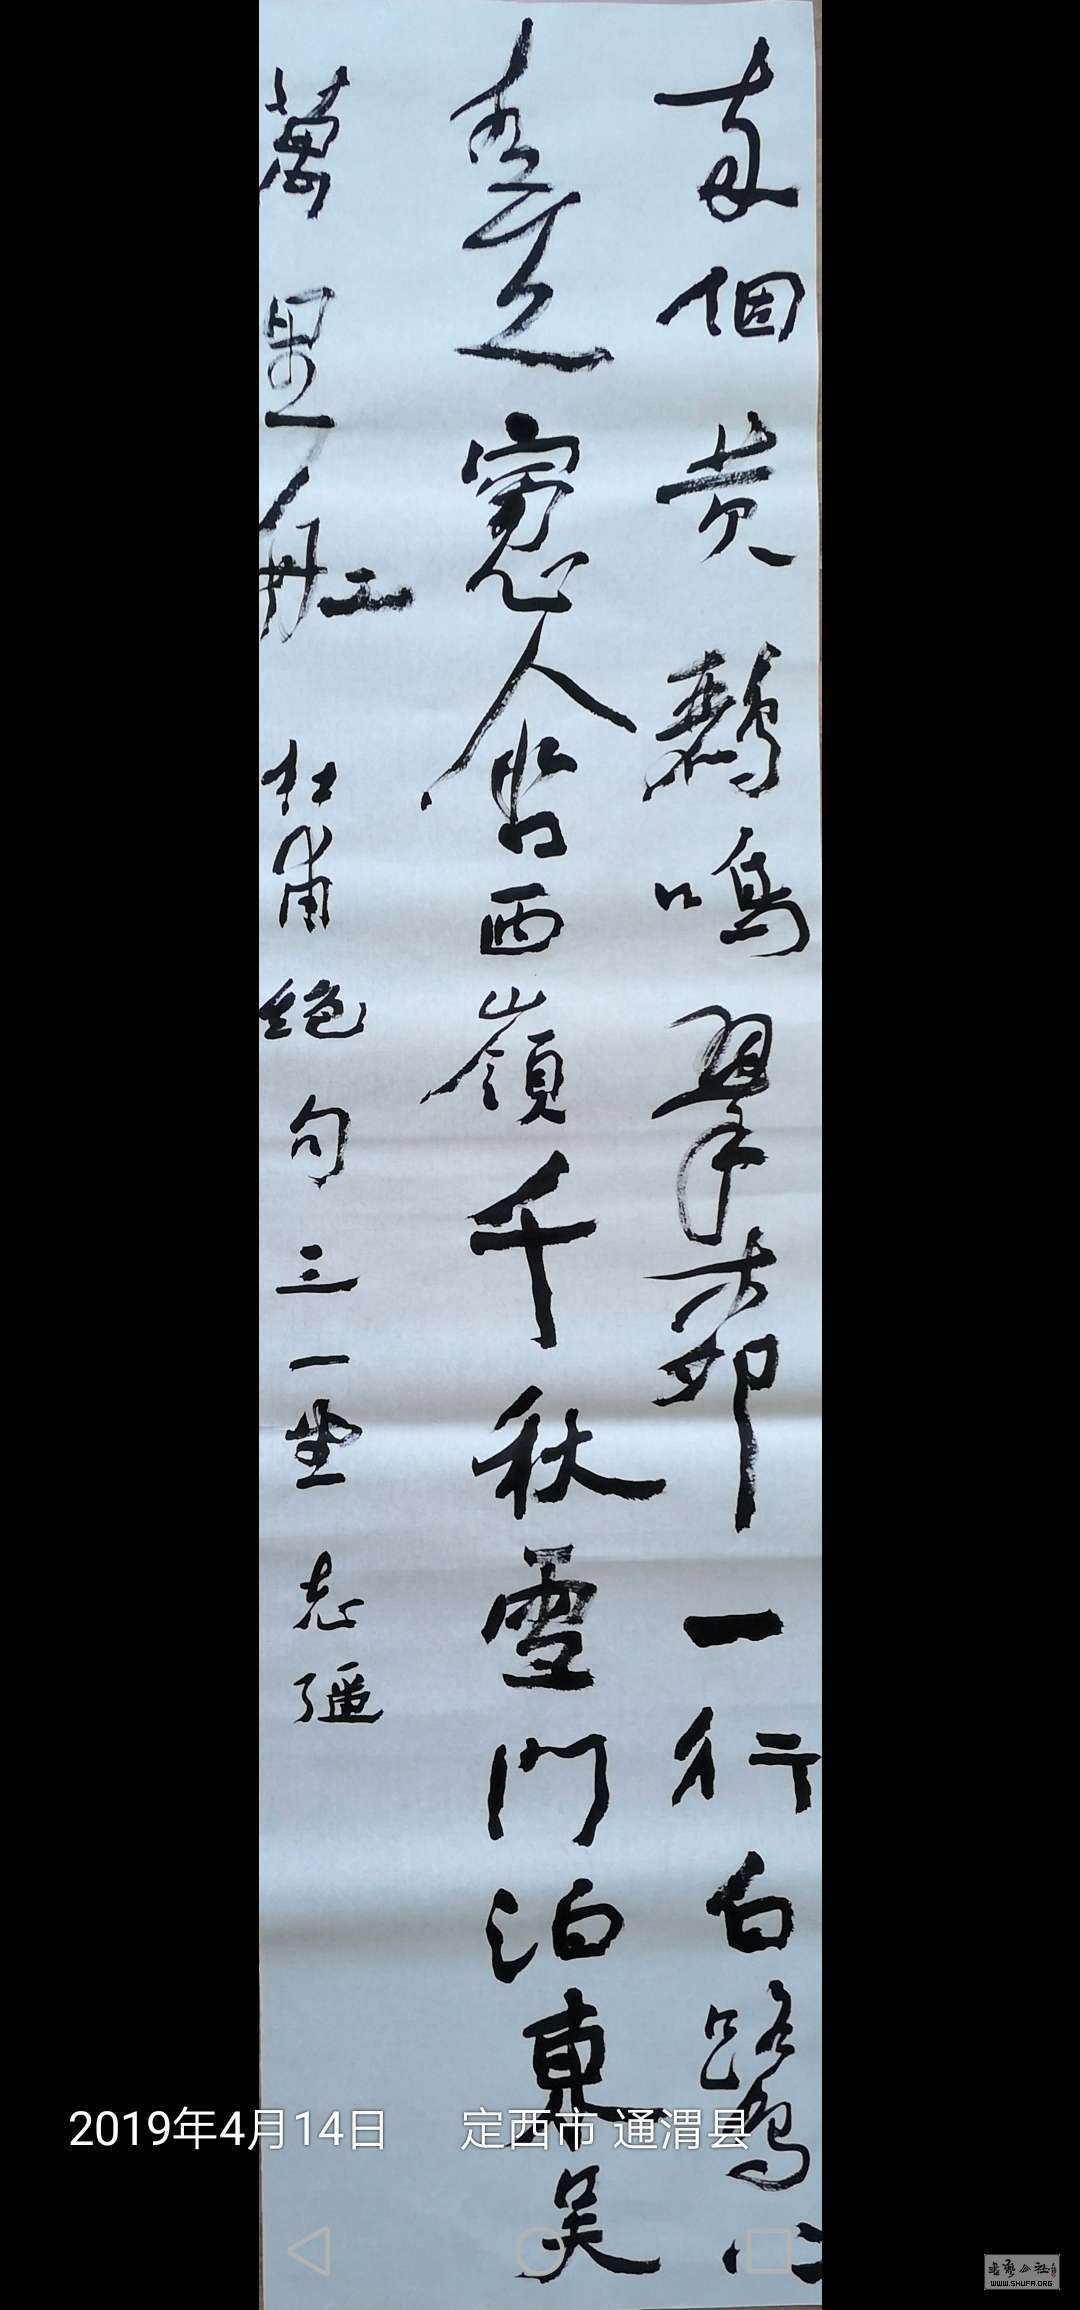 两個黄鸝鳴翠柳一行白鷺上
青天窻含西嶺千秋雪門泊東吴
萬里船 杜甫絕句三一 志强
2019年4月14日 定西市 通渭县
书法公社
WWW.SHUFA.ORG